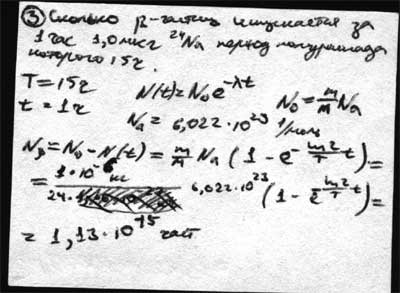 ③ Сколько β-частиц испускается за
1 час 1,0 мкг ²⁴Na период полураспада
которого 15 ч.
T = 15 ч N(t) = N₀e^{-λt} N₀ = m/M Nₐ
t = 1 ч Nₐ = 6,022·10²³ 1/моль
N_β = N₀ - N(t) = m/M Nₐ (1 - e^{-ln2/T t}) =
= 1·10⁻⁶ кг / 24· 6,022·10²³ (1 - e^{-ln2/T t}) =
= 1,13·10¹⁵ част